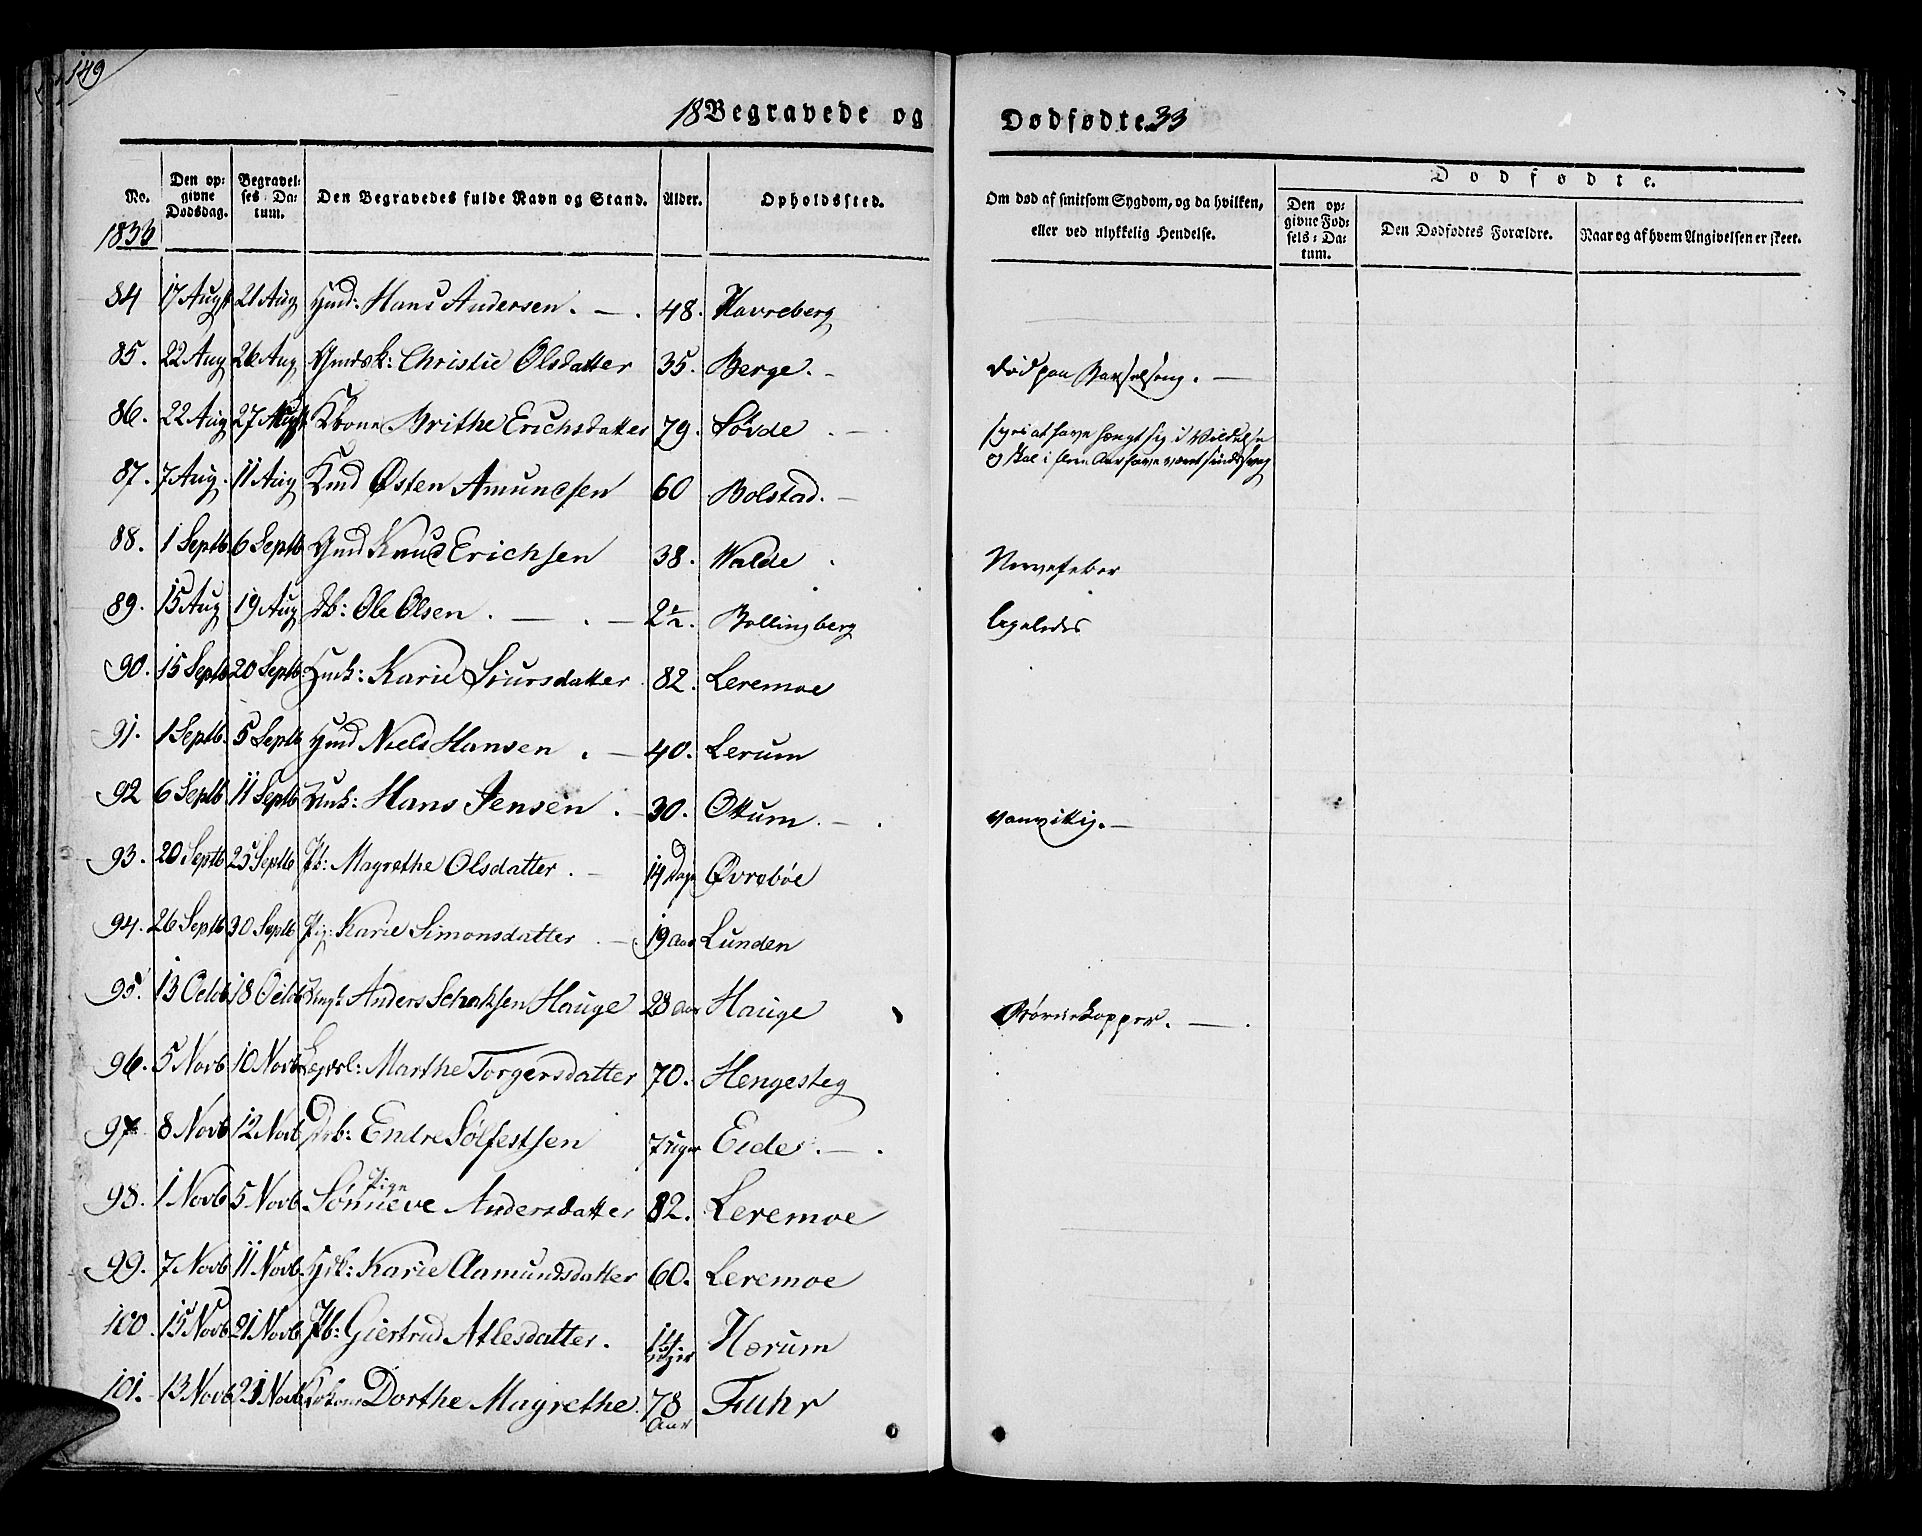 149
18 Begravede og Dødfødte. 33
No.
Den op-
givne
Dødsdag.
Begravel-
ses-Da-
tum.
Den Begravedes fulde Navn og Stand.
Alder.
Opholdssted.
Om død af smitsom Sygdom, og da hvilken,
eller ved ulykkelig Hendelse.
Dødfødte.
Den op-
givne Fød-
sels-Da-
tum.
Den Dødfødtes Forældre.
Naar og af hvem Angivelsen er skeet.
1833
84 17 Augst 21 Aug Hmd: Hans Andersen. 48. Havreberg
85. 22 Aug 26 Aug Gmdsk: Christie Olsdatter 35. Berge. død paa Barselseng.
86. 22 Aug 27 Augst Kkone Brithe Erichsdatter 79. Sövde siges at have hængt sig i Vildelse
og skal i flere Aar have været sindssvag
87. 7 Aug. 11 Aug Kmd Østen Amundsen 60 Bolstad.
88. 1 Septb 6 Septb Gmd Knud Erichsen 38. Walde Nervefeber
89. 15 Aug 19 Aug Db: Ole Olsen. 2½. Bollingberg ligeledes
90. 15 Septb 20 Septb Karie Siursdatter 82. Leremoe
91. 1 Septb. 5 Septb Hmd Niels Hansen. 40. Lerum
92 6 Septb 11 Septb Unk: Hans Jensen. 30. Ottum. vanvittig.
93. 20 Septb 25 Septb Pb: Magrethe Olsdatter. 14 Dage Øvrebøe
94. 26 Septb 30 Septb Pig: Karie Simonsdatter 19 Aar Lunden
95. 13 Octb 18 Octb Ungk: Anders Schaksen Hauge 28 Aar Hauge Børnekopper.
96. 5 Novb 10 Novb Lægdsl: Marthe Torgersdatter 70. Hengesteg
97 8 Novb 12 Novb Drb: Endre Sølfestsen 7 uger Eide.
98. 1 Novb 5 Novb Pige Sønneve Andersdatter 82. Leremoe
99. 7 Novb 11 Novb Karie Aamundsdatter 60. Leremoe
100. 15 Novb 21 Novb Pb: Giertrud Atlesdatter. 14 Dage Hærum
101. 13 Novb 21 Novb Dorthe Magrethe. 78 Aar Fuhr